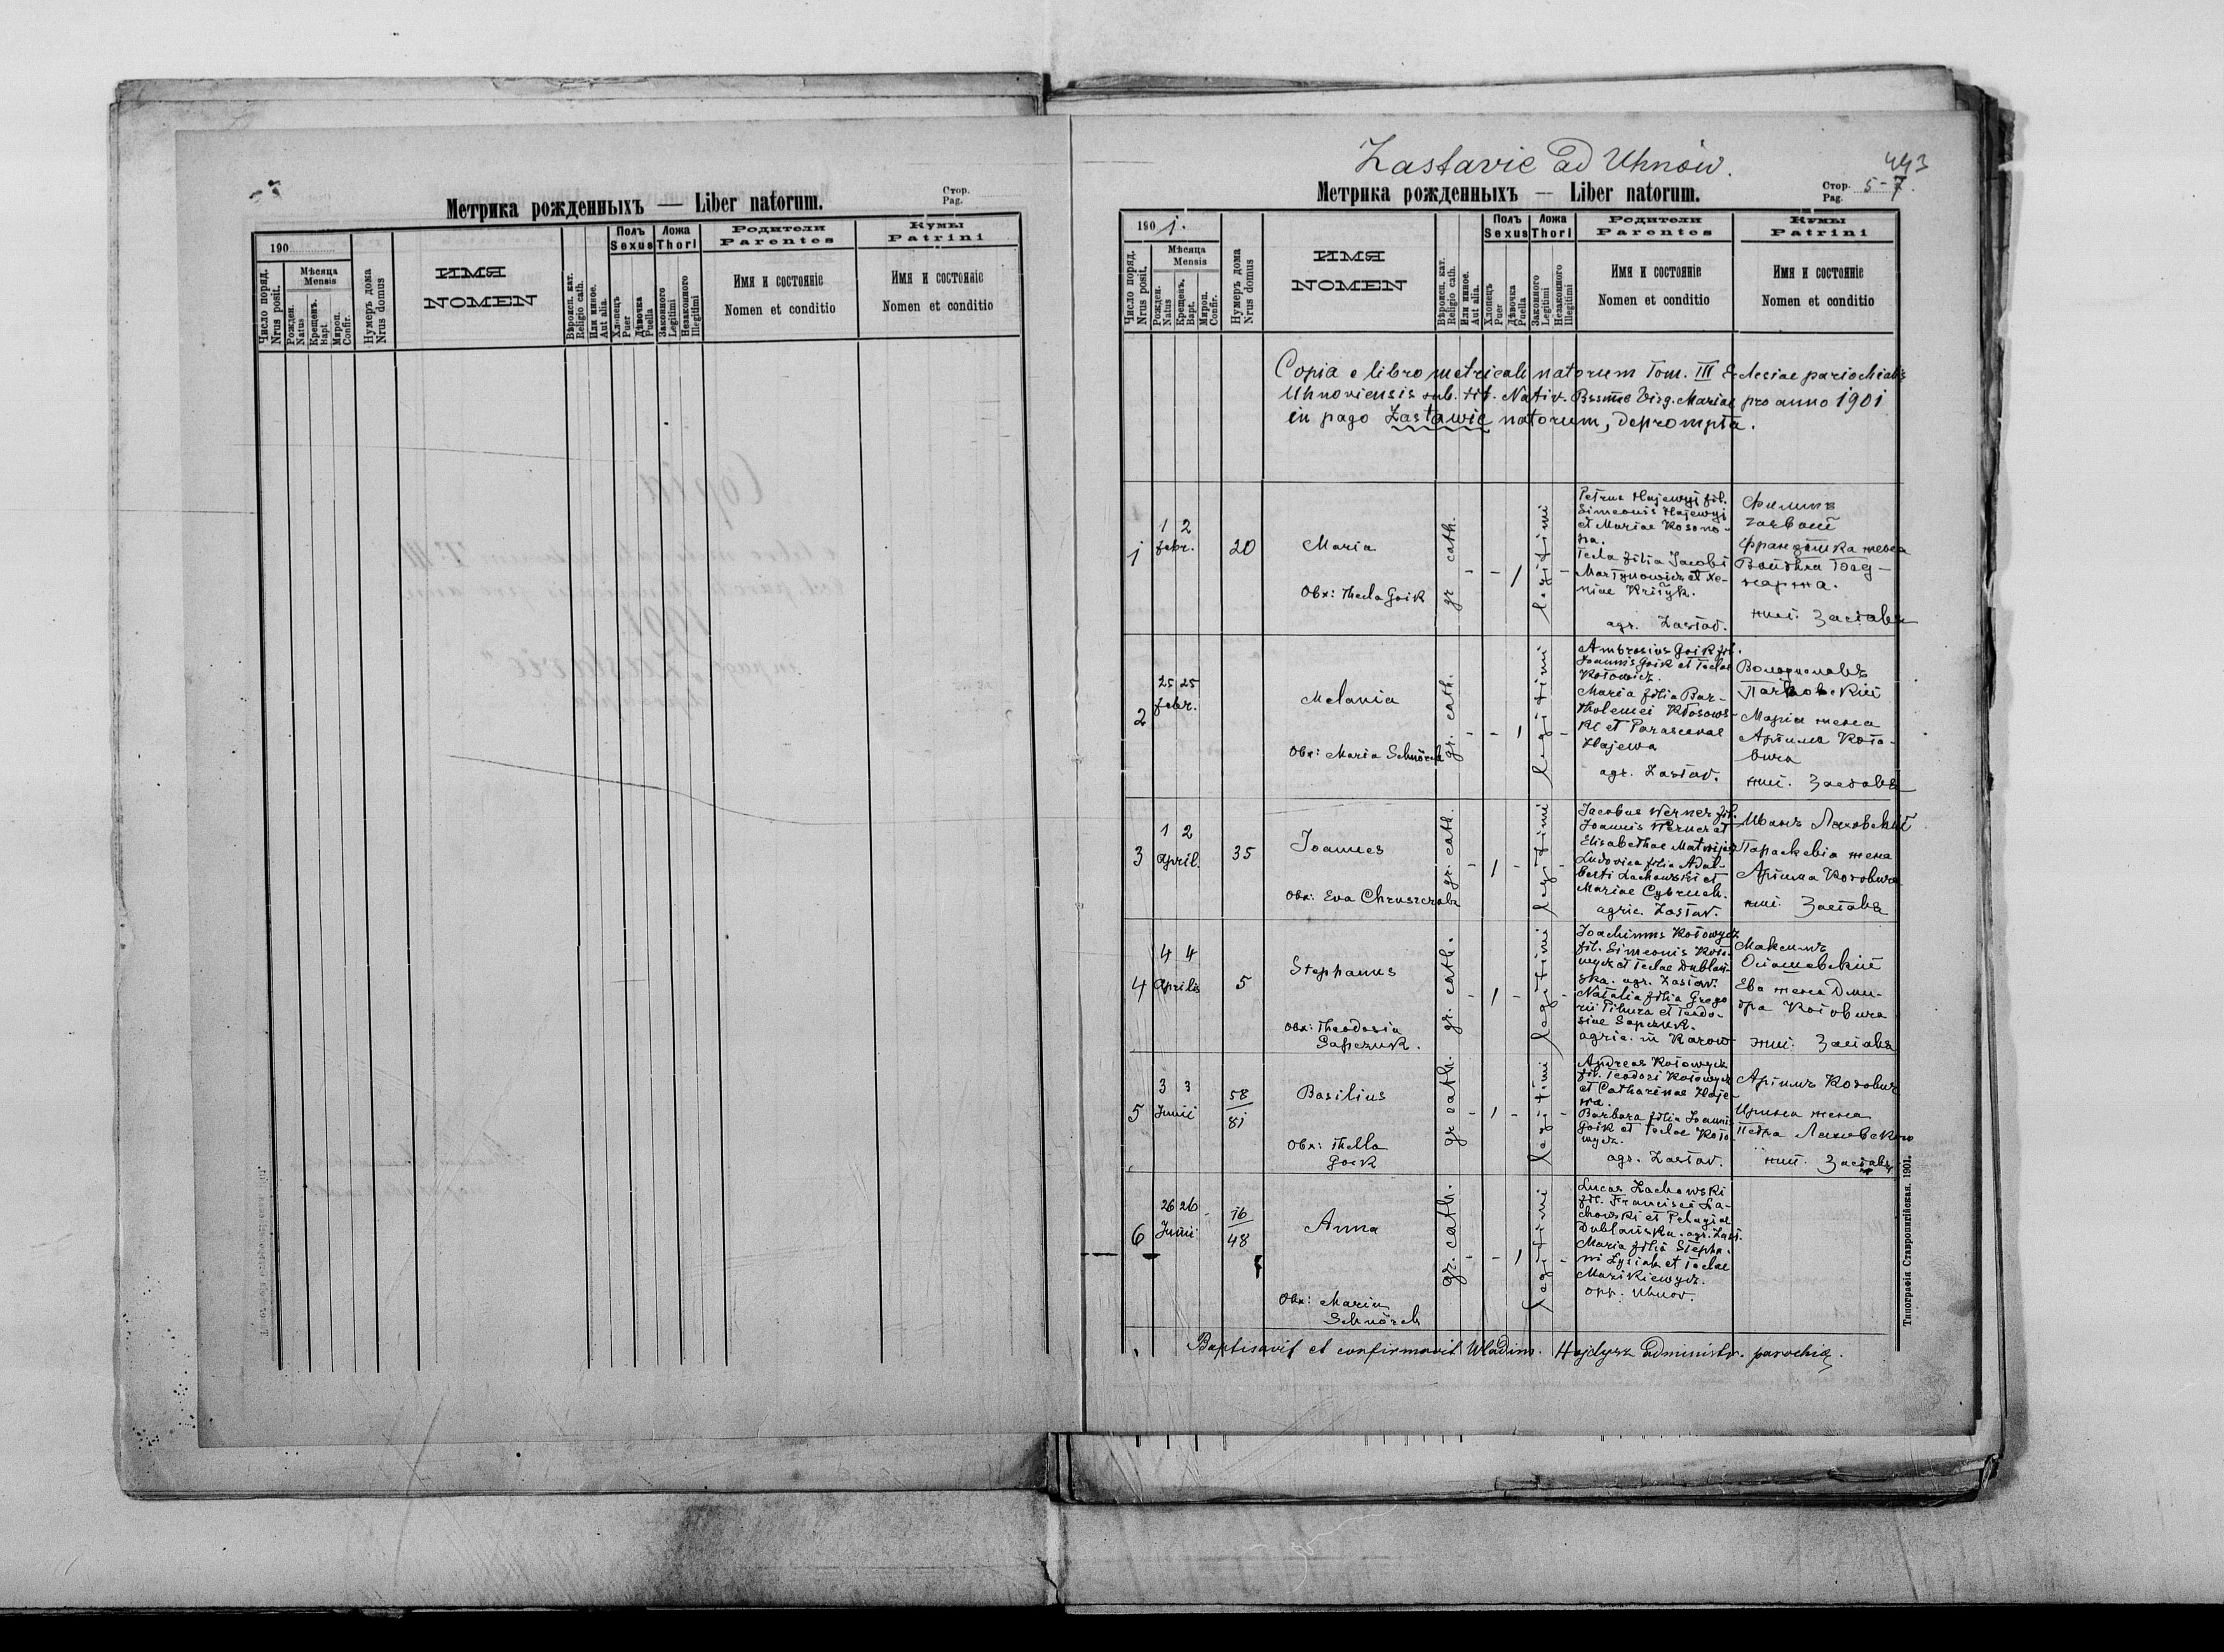 Стор.
Pag.
Метрика рожденныхъ — Liber natorum.
190
Число поряд.
Nrus posit.
Мѣсяца
Mensis
Рожден.
Natus
Крещенъ.
Bapt.
Мироп.
Confir.
Нумеръ дома
Nrus domus
ИМЯ
NOMEN
Вѣроисп. кат.
Religio cath.
Или инное.
Aut alia.
Полъ
Sexus
Хлопецъ
Puer
Дѣвочка
Puella
Ложа
Thori
Законного
Legitimi
Незаконного
Illegitimi
Родители
Parentes
Имя и состояніе
Nomen et conditio
Кумы
Patrini
Имя и состояніе
Nomen et conditio
Zastavie ad Uhnów.
443
Метрика рожденныхъ — Liber natorum.
Стор. 5-7.
Pag.
1901.
Число поряд.
Nrus posit.
Мѣсяца
Mensis
Рожден.
Natus
Крещенъ.
Bapt.
Мироп.
Confir.
Нумеръ дома
Nrus domus
ИМЯ
NOMEN
Вѣроисп. кат.
Religio cath.
Или инное.
Aut alia.
Полъ
Sexus
Хлопецъ
Puer
Дѣвочка
Puella
Ложа
Thori
Законного
Legitimi
Незаконного
Illegitimi
Родители
Parentes
Имя и состояніе
Nomen et conditio
Кумы
Patrini
Имя и состояніе
Nomen et conditio
Copia e libro metricali natorum Tom. III Eclesiae pariochialis
Uhnoviensis sub. tit. Nativ. Bssmae Virg. Mariae pro anno 1901
in pago Zastawie natorum, deprompta.
1
1 2
febr.
20
Maria
Obx: Thecla Goik
gr. cath.
- - 1 -
legitimi
Petrus Hajewyj fil.
Simeonis Hajewyj
et Mariae
Tecla filia Jacobi
Martynowicz et Xe-
niae
agr. Zastav.
Филипъ
жена
жит. Заставя
2
25 25
febr.
Melania
Obx: Maria Schnörch
gr. cath.
- - 1 -
legitimi
Ambrosius Goik fil.
Joannis Goik et Teclae
Kotowicz.
Maria filia Bar-
tholomei Kłosows-
ki et Parascevae
Hajewa
agr. Zastav.
Марія жена
жит. Заставя
3
1 2
April.
35
Joannes
Obx: Eva
gr. cath.
- 1 - -
legitimi
Jacobus Werner fil.
Joannis Werner et
Elisabethae
Ludovica filia Adal-
berti Lachowski et
Mariae Cybruch.
agric. Zastav.
Иванъ Ляховскій
Параскевія жена
жит. Заставя
4
4 4
Aprilis
5
Stephanus
Obx: Theodosia
Sapczuk.
gr. cath.
- 1 - -
legitimi
Joachimus Kotowycz
fil. Simeonis Koto-
wycz et Teclae Dublan-
ska. agr. Zastav.
Natalia filia Grego-
rii Pihura et Teodo-
siae Sapczuk.
agric. in Karow
Максимъ
Осташевскій
Ева жена Дми-
тра Котовича
жит. Заставя
5
3 3
Junii
58
81
Basilius
Obx: Thecla
Goik
gr. cath.
- 1 - -
legitimi
Andreas Kotowycz
fil. Teodori Kotowycz
et Catharinae Haje-
wa.
Barbara filia Joannis
Goik et Teclae Koto-
wycz.
agr. Zastav.
Ирина жена
Петра Ляховского
жит. Заставя
6
26 26
Junii
16
48
Anna
Obx: Maria
Schnörch
gr. cath.
- - 1 -
legitimi
Lucas Lachowski
fil. Francisci La-
chowski et Pelagiae
Dublańska. agr. Zast.
Maria filia Stepha-
ni Łysiak et Teclae
opp. Uhnov.
Baptisavit et confirmavit Wladim. Hajdysz administr. parochiae.
Типографія Ставропигійская. 1901.